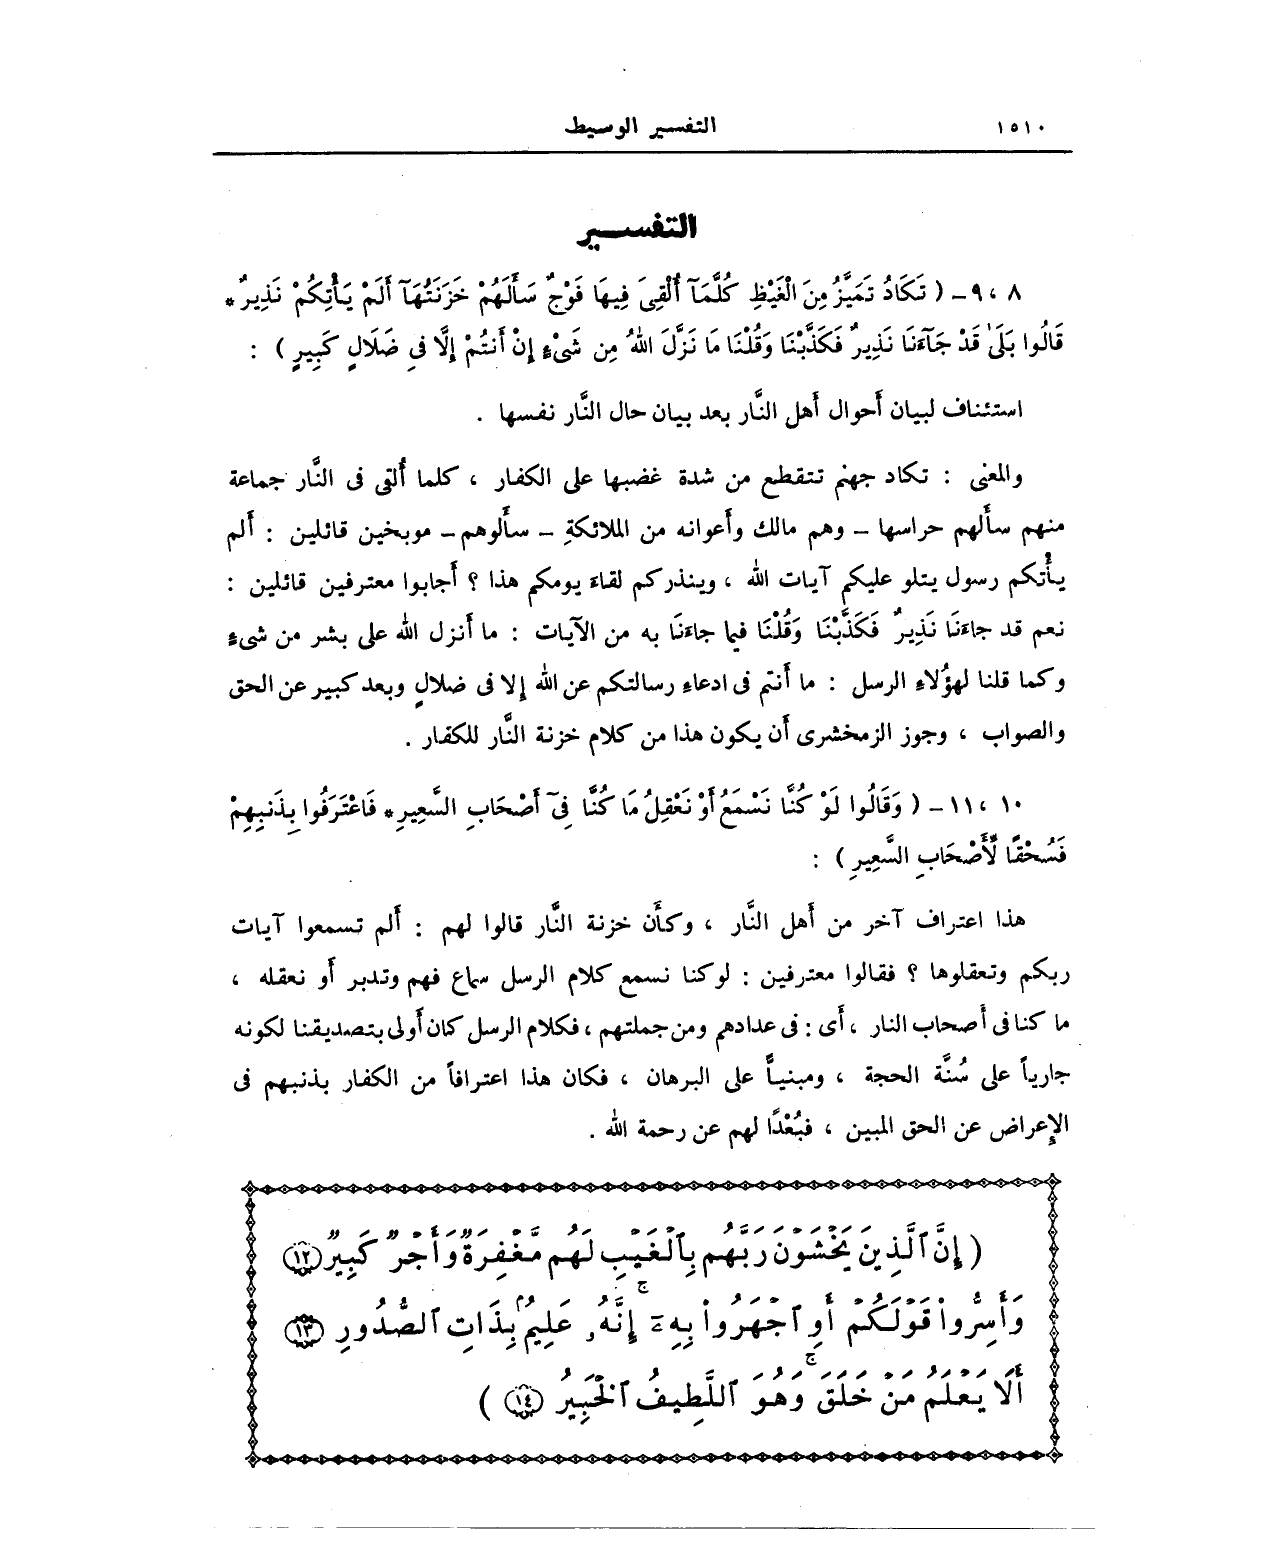 ١٥١٠
التفسير الوسيط
التفسـير
٨ ، ٩ـ ( تَكَادُ تَمَيَّزُ مِنَ الْغَيْظِ كُلَّمَآ أُلْقِىَ فِيهَا فَوْجٌ سَأَلَهُمْ خَزَنَتُهَآ أَلَمْ يَأْتِكُمْ نَذِيرٌ *
قَالُوا بَلَىٰ قَدْ جَآءَنَا نَذِيرٌ فَكَذَّبْنَا وَقُلْنَا مَا نَزَّلَ اللهُ مِن شَىْءٍ إِنْ أَنتُمْ إِلَّا فِى ضَلَالٍ كَبِيرٍ ) :
استئناف لبيان أحوال أهل النَّار بعد بيان حال النَّار نفسها .
والمعنى : تكاد جهنم تتقطع من شدة غضبها على الكفار ، كلما أُلقى فى النَّار جماعة
منهم سألهم حراسها ـ وهم مالك وأعوانه من الملائكةِ ـ سألوهم ـ موبخين قائلين : ألم
يأتكم رسول يتلو عليكم آيات الله ، وينذركم لقاءَ يومكم هذا ؟ أجابوا معترفين قائلين :
نعم قد جاءَنَا نَذِيرٌ فَكَذَّبْنَا وَقُلْنَا فيما جاءَنَا به من الآيات : ما أنزل الله على بشر من شىءٍ
وكما قلنا لهؤُلاءِ الرسل : ما أنتم فى ادعاءِ رسالتكم عن الله إلا فى ضلالٍ وبعد كبير عن الحق
والصواب ، وجوز الزمخشرى أن يكون هذا من كلام خزنة النَّار للكفار .
١٠ ، ١١ـ ( وَقَالُوا لَوْ كُنَّا نَسْمَعُ أَوْ نَعْقِلُ مَا كُنَّا فِىٓ أَصْحَابِ السَّعِيرِ * فَاعْتَرَفُوا بِذَنبِهِمْ
فَسُحْقًا لِّأَصْحَابِ السَّعِيرِ ) :
هذا اعتراف آخر من أهل النَّار ، وكأن خزنة النَّار قالوا لهم : ألم تسمعوا آيات
ربكم وتعقلوها ؟ فقالوا معترفين : لو كنا نسمع كلام الرسل سماع فهم وتدبر أو نعقله ،
ما كنا فى أصحاب النار ، أى : فى عدادهم ومن جملتهم ، فكلام الرسل كان أولى بتصديقنا لكونه
جارياً على سُنَّة الحجة ، ومبنياً على البرهان ، فكان هذا اعترافاً من الكفار بذنبهم فى
الإعراض عن الحق المبين ، فبُعْدًا لهم عن رحمة الله .
( إِنَّ ٱلَّذِينَ يَخْشَوْنَ رَبَّهُم بِٱلْغَيْبِ لَهُم مَّغْفِرَةٌ وَأَجْرٌ كَبِيرٌ ١٢
وَأَسِرُّوا۟ قَوْلَكُمْ أَوِ ٱجْهَرُوا۟ بِهِۦٓ ۖ إِنَّهُۥ عَلِيمٌۢ بِذَاتِ ٱلصُّدُورِ ١٣
أَلَا يَعْلَمُ مَنْ خَلَقَ ۚ وَهُوَ ٱللَّطِيفُ ٱلْخَبِيرُ ١٤ )